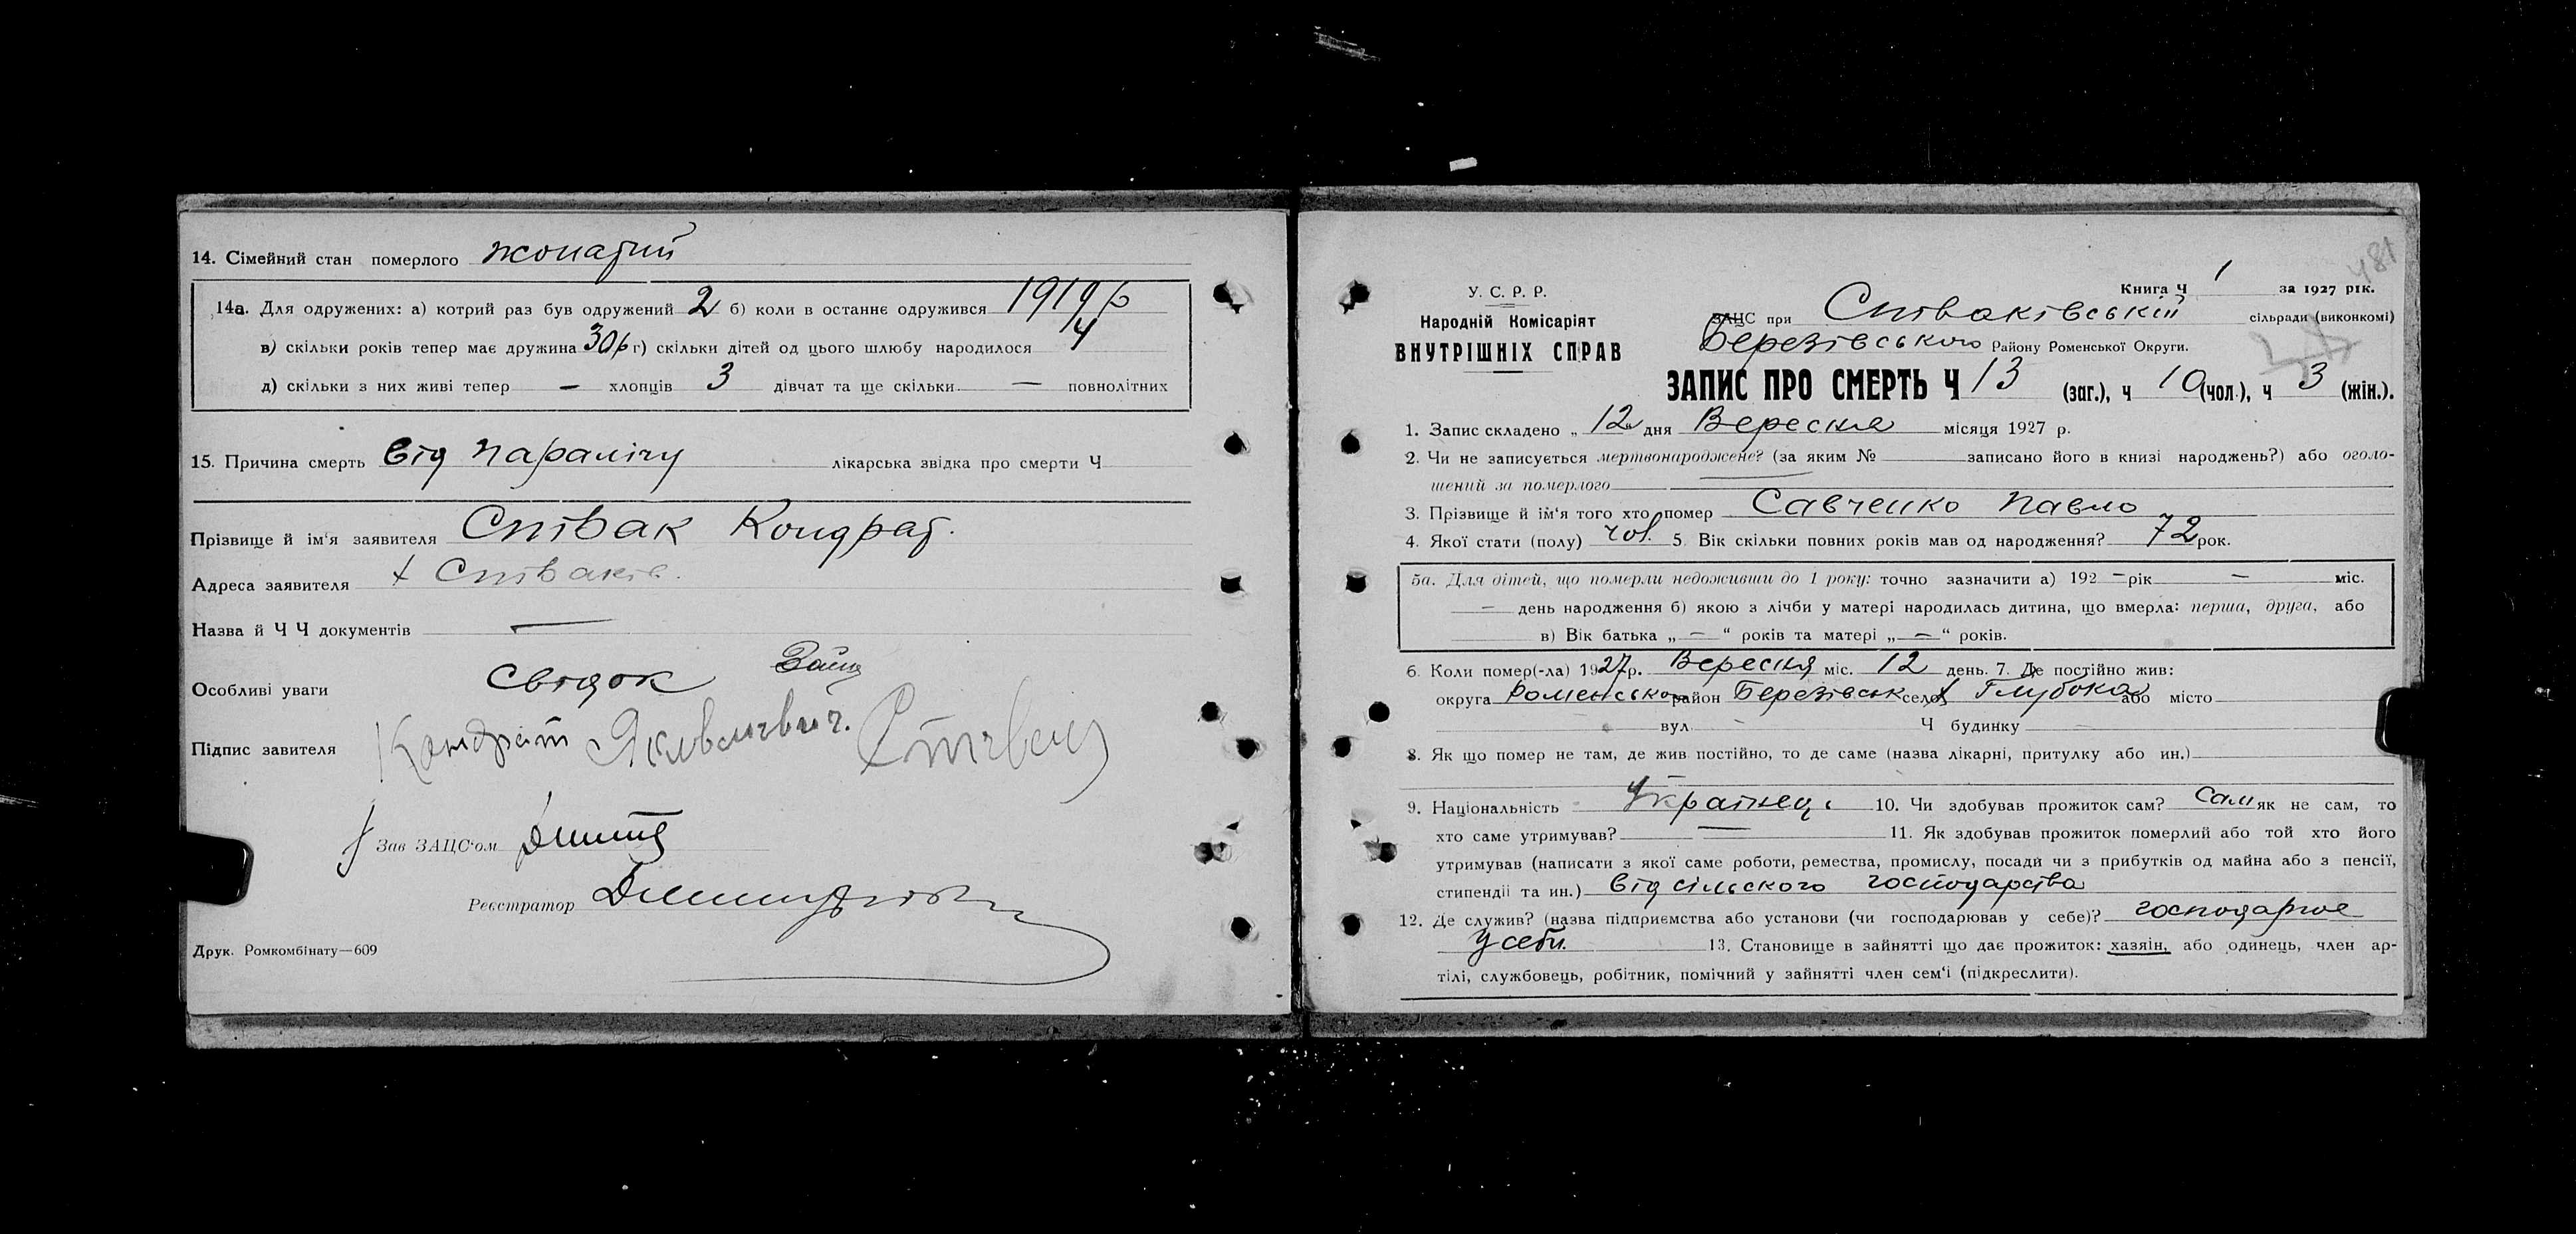 14. Сімейний стан померлого жонатий
14а. Для одружених: а) котрий раз був одружений 2 б) коли в останнє одружився 1919 р
в) скільки років тепер має дружина 30 р г) скільки дітей од цього шлюбу народилося 4
д) скільки з них живі тепер — хлопців 3 дівчат та ще скільки — повнолітних
15. Причина смерть від паралічу лікарська звідка про смерти Ч
Прізвище й ім'я заявителя Співак Кондрат.
Адреса заявителя х Співаків.
Назва й Ч Ч документів —
Особливі уваги свідок
Підпис завителя Кондрат Яковлевич
Зав ЗАЦС'ом
Реєстратор
Друк. Ромкомбінату—609
481
Книга Ч 1 за 1927 рік.
У. С. Р. Р.
Народній Комісаріят
ВНУТРІШНІХ СПРАВ
ЗАЦС при Співаківській сільради (виконкомі)
Березівського Району Роменської Округи.
ЗАПИС ПРО СМЕРТЬ Ч 13 (заг.), ч 10 (чол.), ч 3 (жін.).
1. Запис складено „ 12 дня Вересня місяця 1927 р.
2. Чи не записується мертвонароджене? (за яким № записано його в книзі народжень?) або оголо-
шений за померлого —
3. Прізвище й ім'я того хто помер Савченко Павло
4. Якої стати (полу) чол. 5. Вік скільки повних років мав од народження? 72 рок.
5а. Для дітей, що померли недоживши до 1 року: точно зазначити а) 192 – рік — міс.
— день народження б) якою з лічби у матері народилась дитина, що вмерла: перша, друга, або
в) Вік батька „ — “ років та матері „ — “ років.
6. Коли помер(-ла) 1927 р. Вересня міс. 12 день. 7. Де постійно жив:
округа Роменсько район Березівськ село х Глубока або місто
вул. Ч будинку
8. Як що помер не там, де жив постійно, то де саме (назва лікарні, притулку або ин.)
9. Національність Українец. 10. Чи здобував прожиток сам? Сам як не сам, то
хто саме утримував? — 11. Як здобував прожиток померлий або той хто його
утримував (написати з якої саме роботи, ремества, промислу, посади чи з прибутків од майна або з пенсії,
стипендії та ин.) від сільского господарства
12. Де служив? (назва підприємства або установи (чи господарював у себе)? господарює
у себи. 13. Становище в зайнятті що дає прожиток: хазяін, або одинець, член ар-
тілі, службовець, робітник, помічний у зайнятті член сем'ї (підкреслити).